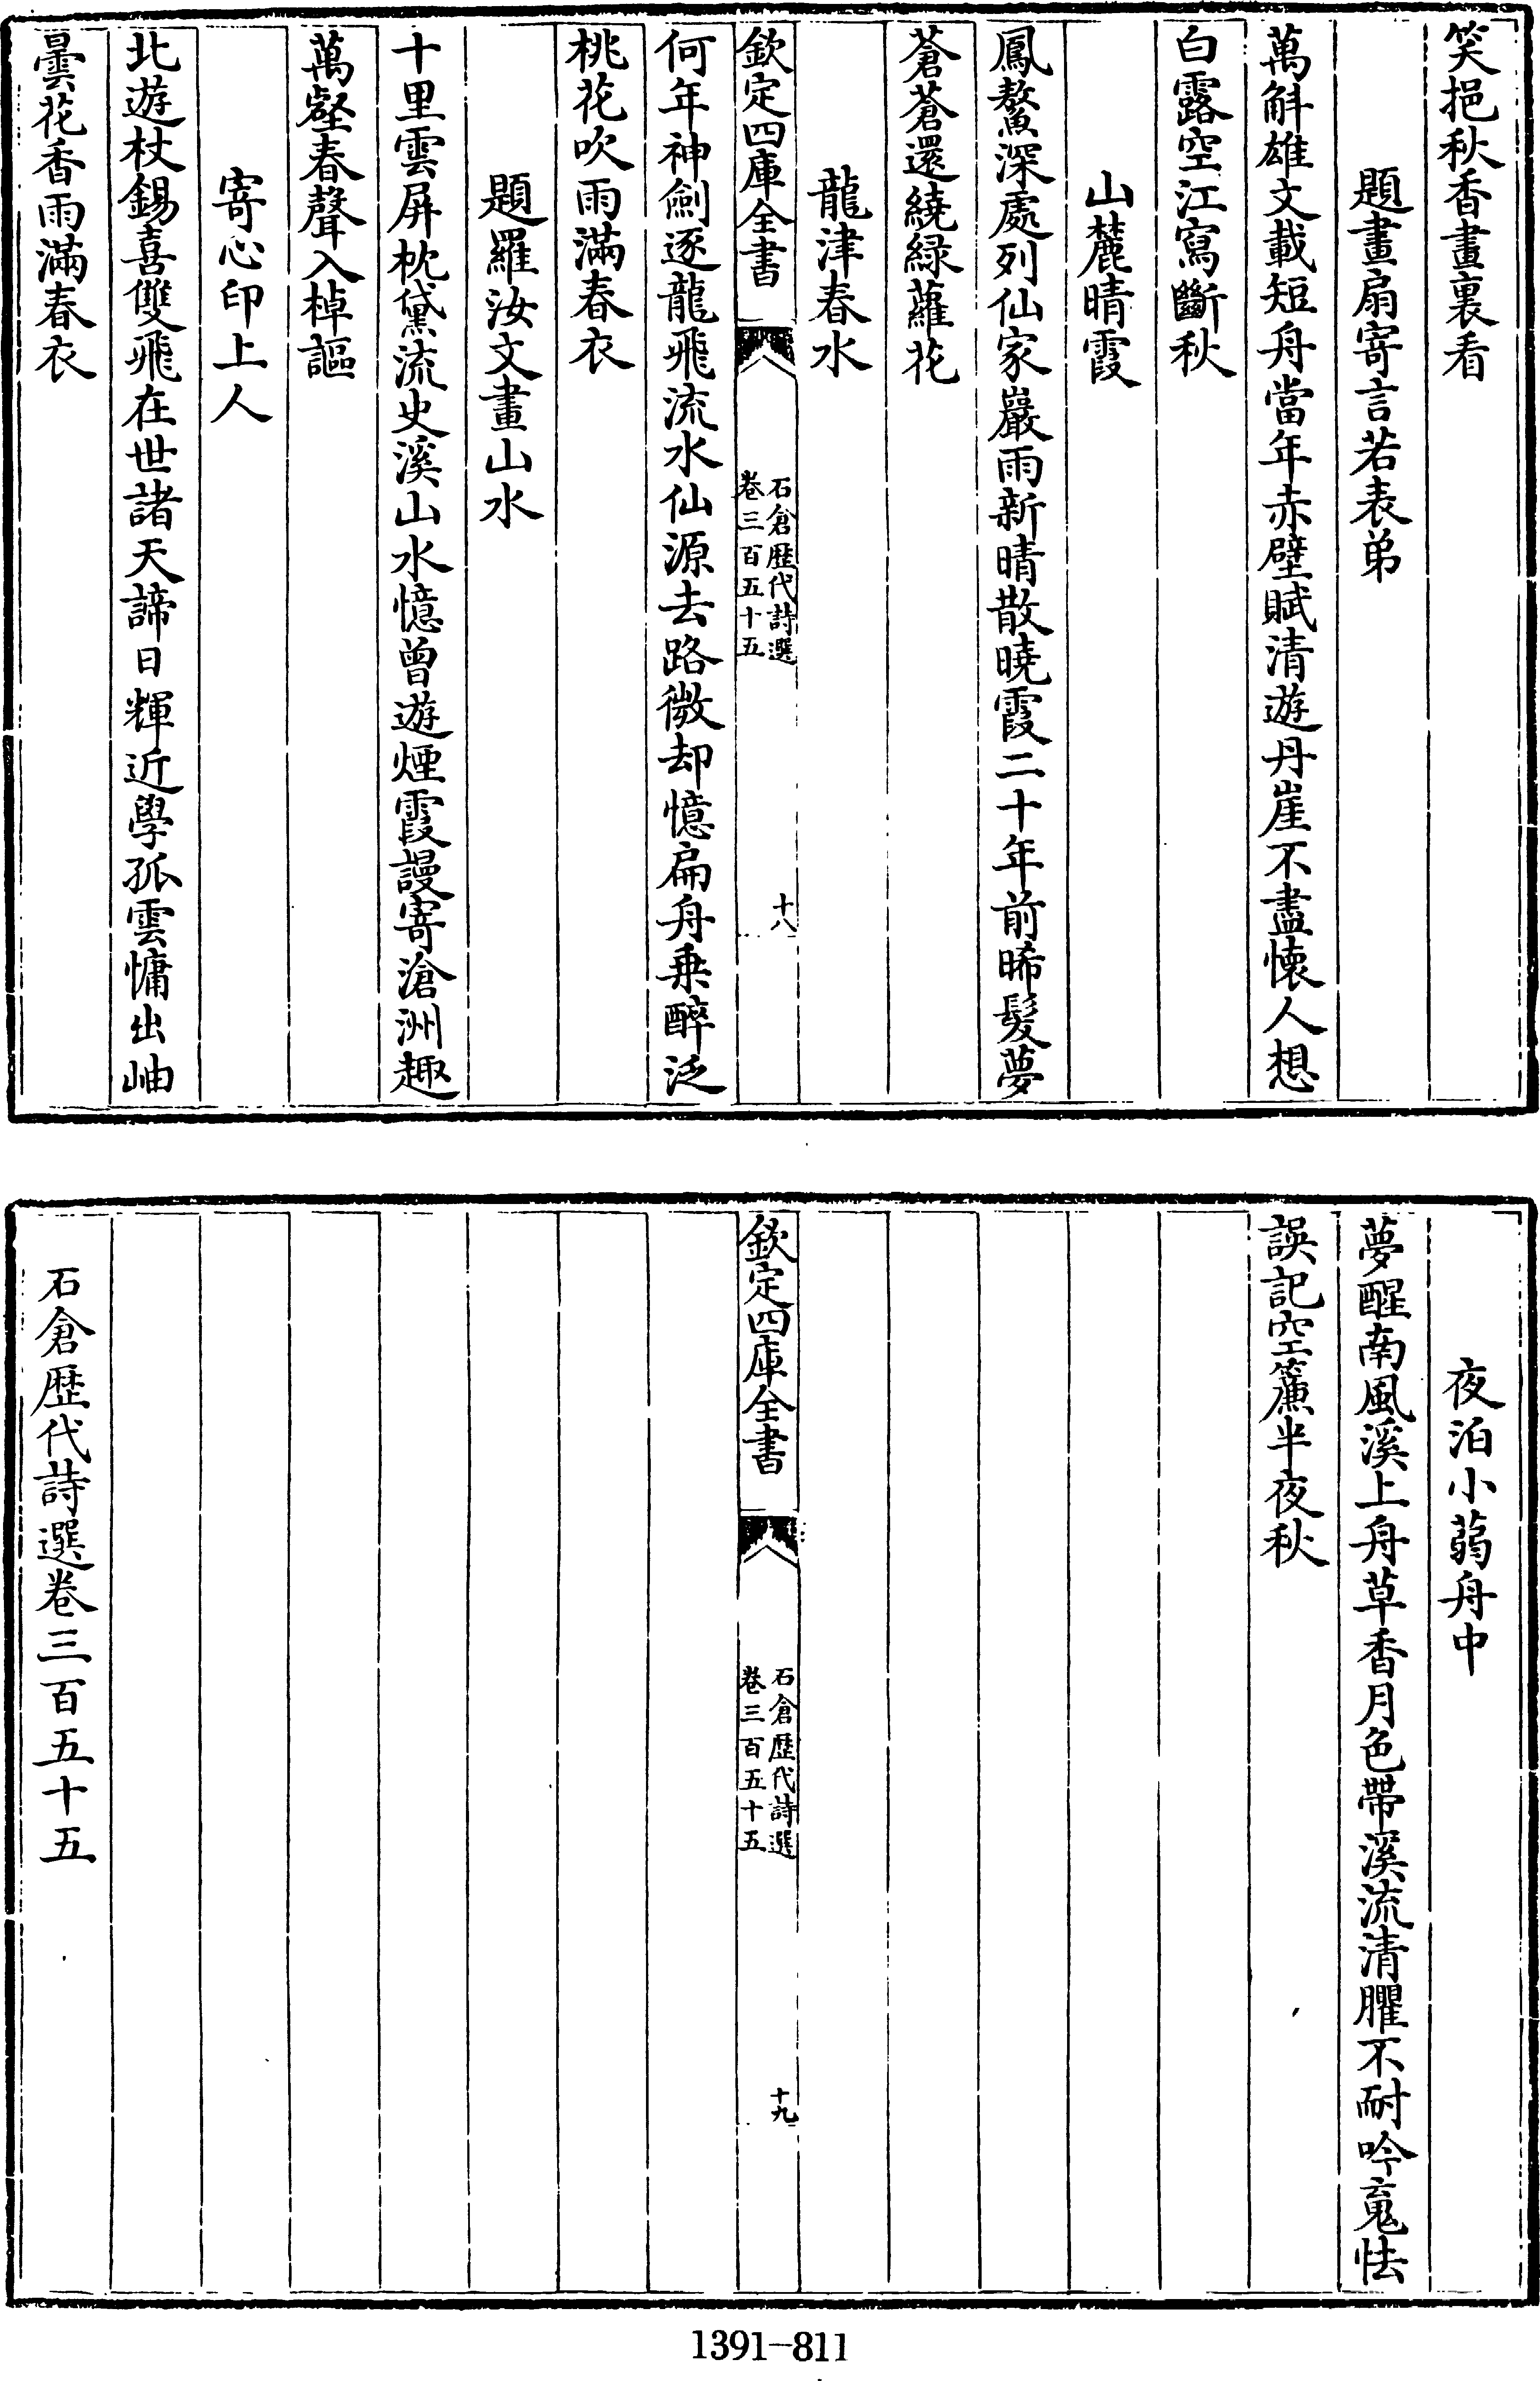 笑挹秋香畫裏看
題畫扇寄言若表弟
萬斛雄文載短舟當年赤壁賦清遊丹崖不盡懷人想
白露空江寫斷秋
山麓晴霞
鳳鰲深處列仙家巖雨新晴散曉霞二十年前晞髮夢
蒼蒼還繞綠蘿花
龍津春水
欽定四庫全書
石倉歷代詩選
卷三百五十五
十八
何年神劍逐龍飛流水仙源去路微却憶扁舟乗醉泛
桃花吹雨滿春衣
題羅汝文畫山水
十里雲屏枕黛流史溪山水憶曾遊煙霞謾寄滄洲趣
萬壑春聲入棹謳
寄心印上人
北遊杖錫喜雙飛在世諸天諦日輝近學孤雲慵出岫
曇花香雨滿春衣
夜泊小蒻舟中
夢醒南風溪上舟草香月色帶溪流清臞不耐吟䰟怯
誤記空簾半夜秋
欽定四庫全書
石倉歷代詩選
卷三百五十五
十九
石倉歷代詩選卷三百五十五
1391-811